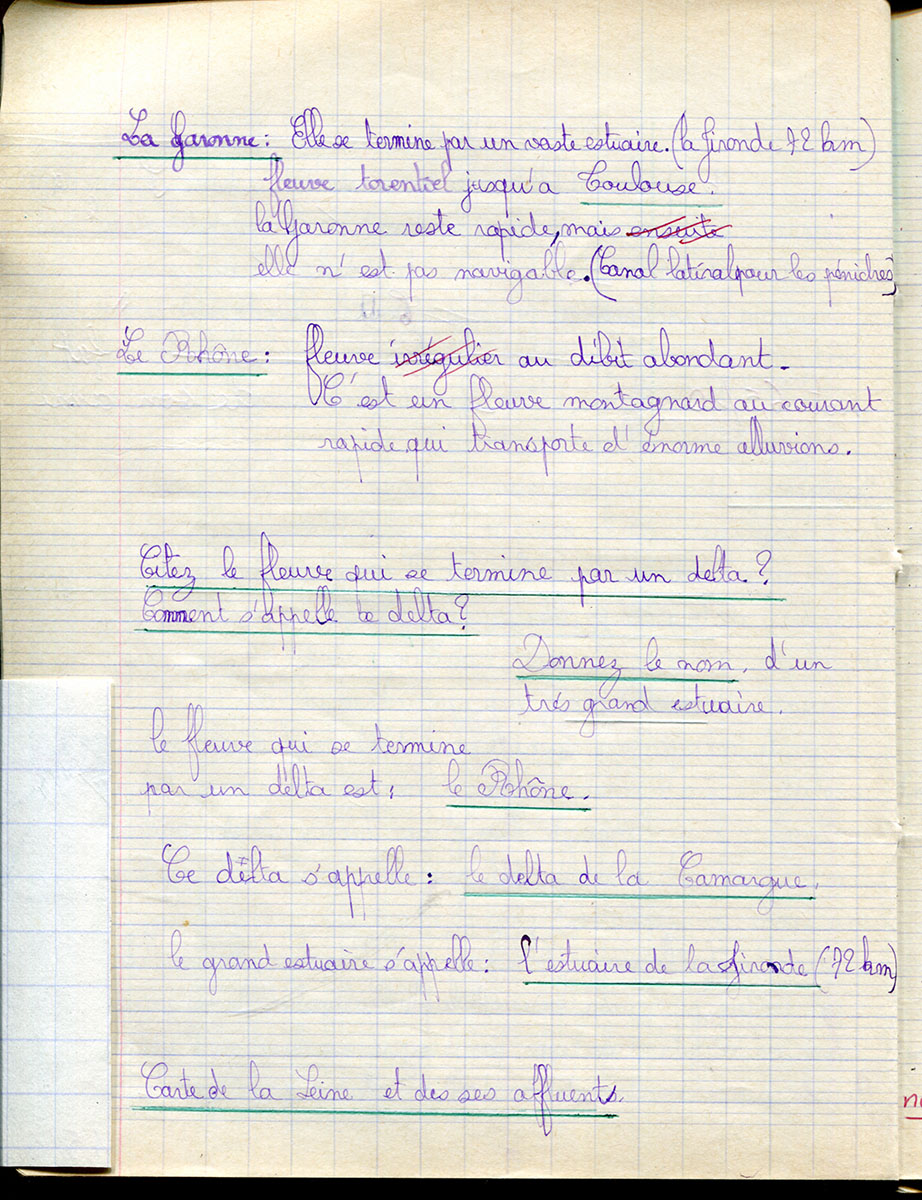 La Garonne: Elle se termine par un vaste estuaire. (la Gironde 72 km)
fleuve torentiel jusqu'a Toulouse.
la Garonne reste rapide, mais ensuite
elle n'est pas navigable. (Canal latéral pour les péniches)
Le Rhône: fleuve irrégulier au débit abondant.
C'est un fleuve montagnard au courant
rapide, qui transporte d'énorme alluvions.
Citez le fleuve qui se termine par un delta?
Comment s'appelle ce delta?
Donnez le nom, d'un
trés grand estuaire.
le fleuve qui se termine
par un délta est: le Rhône.
Ce délta s'appelle: le delta de la Camargue.
le grand estuaire s'appelle: l'estuaire de la Gironde (72 km)
Carte de la Seine et des ses affluents.